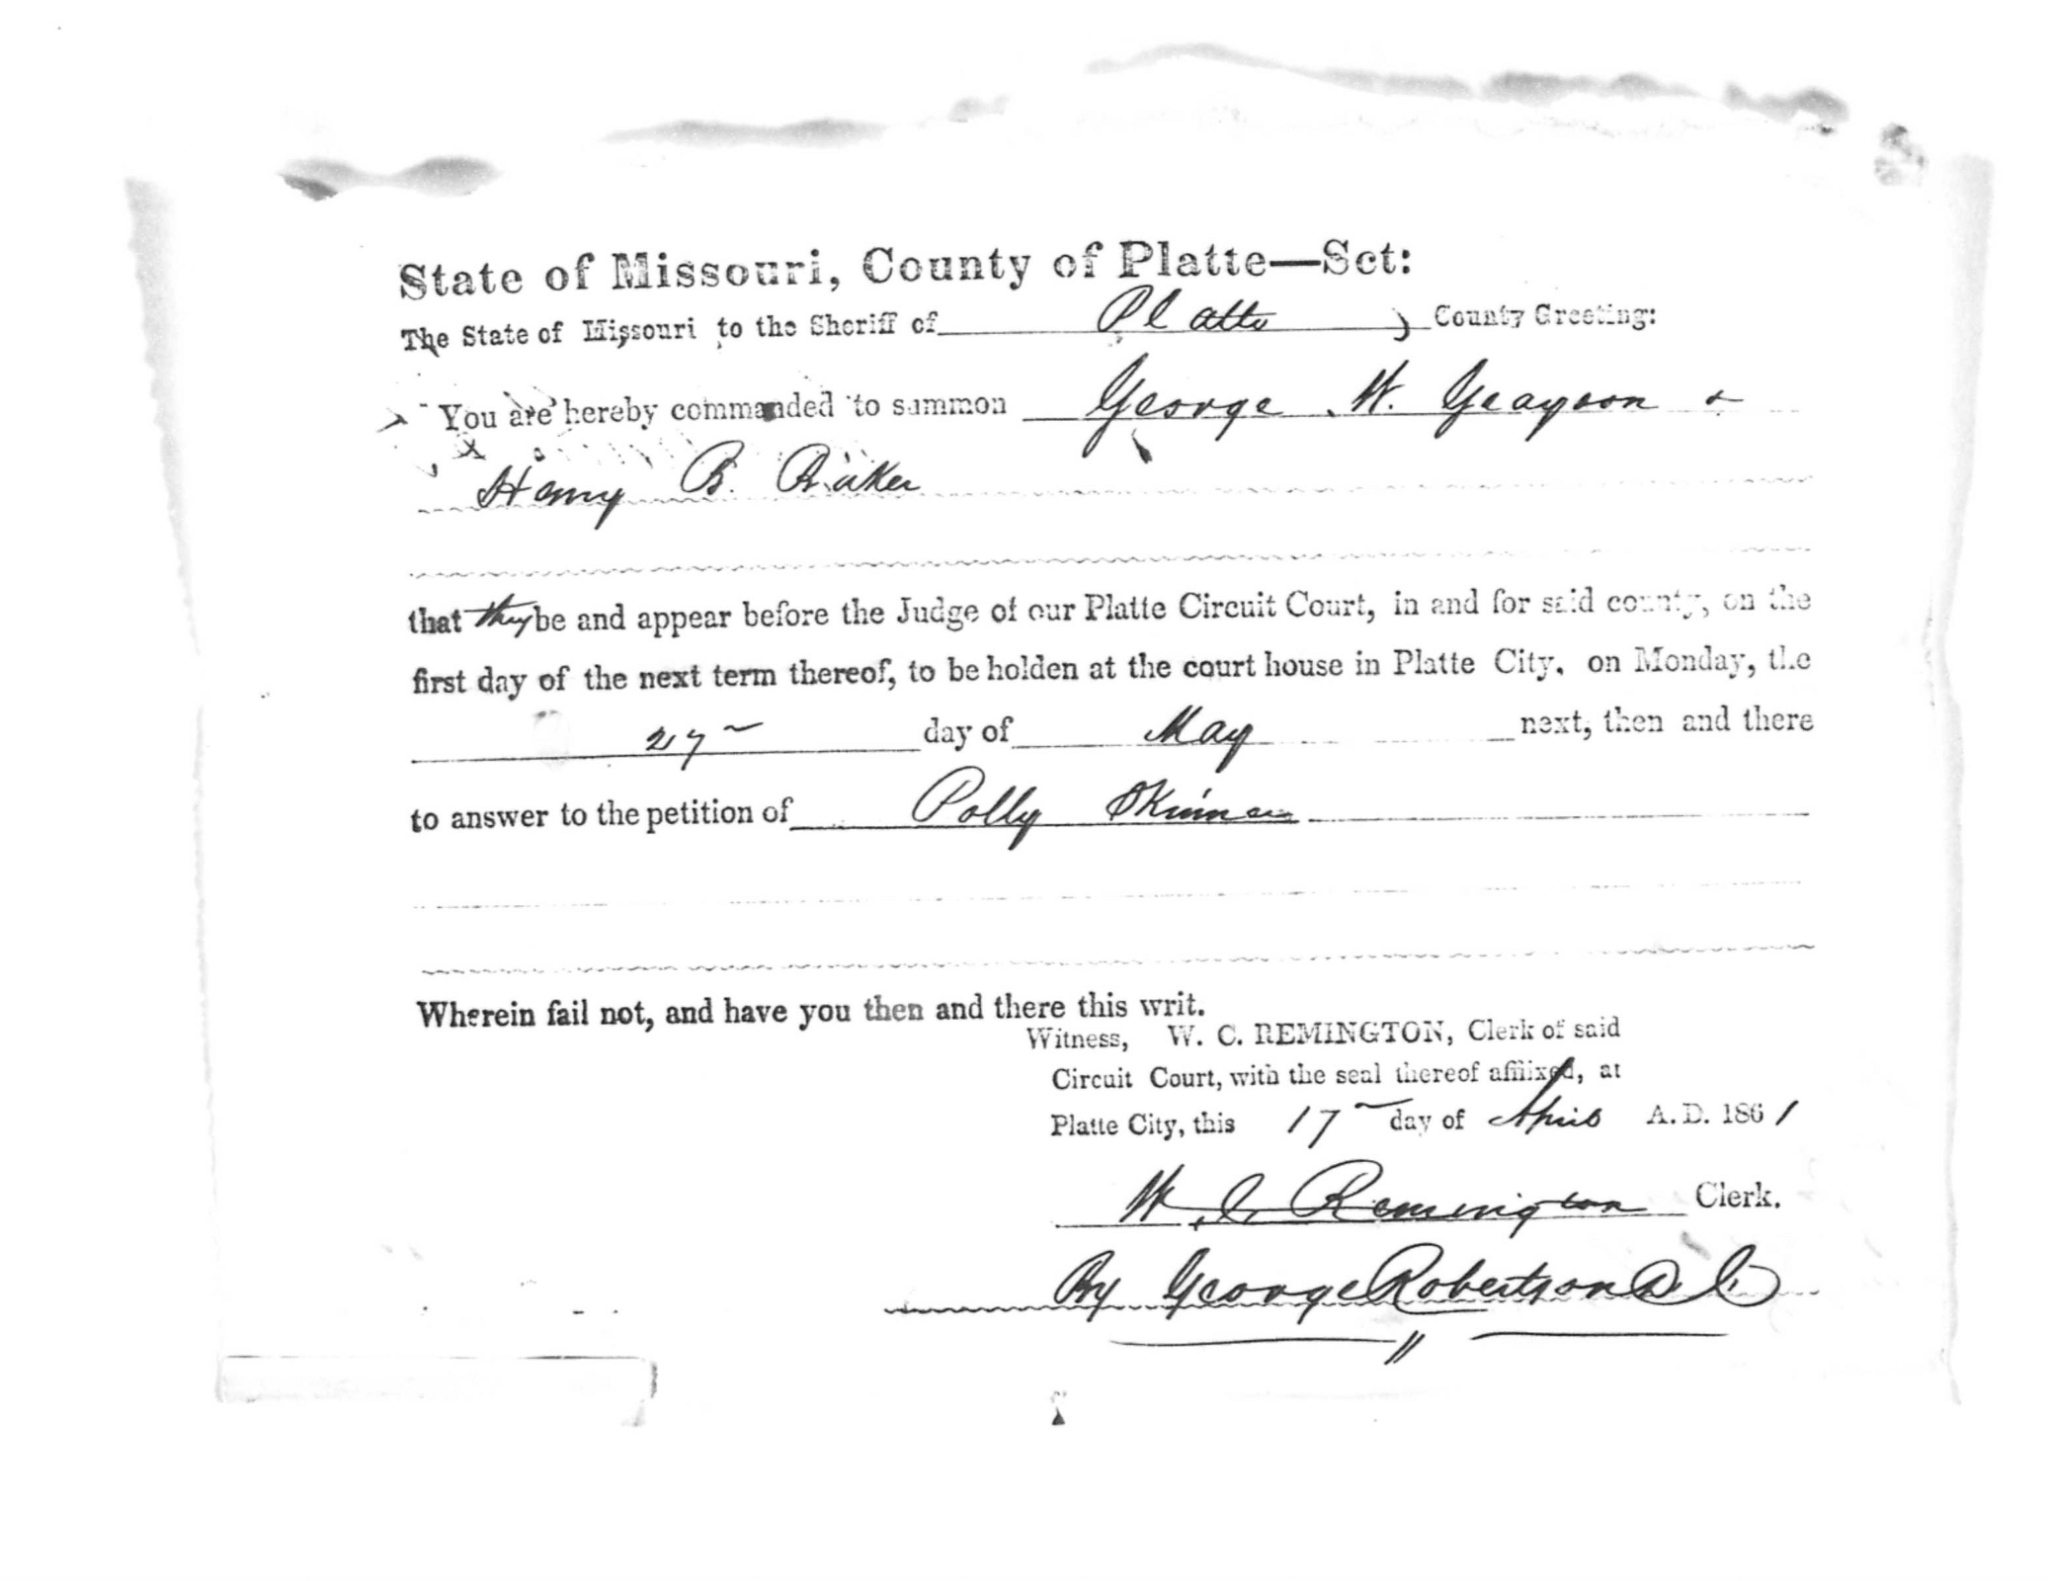 State of Missouri, County of Platte—Sct:
The State of Missouri to the Sheriff of Platte County Greeting:
You are hereby commanded to summon George W. Grayson &
Henry B. Baker
that they be and appear before the Judge of our Platte Circuit Court, in and for said county, on the
first day of the next term thereof, to be holden at the court house in Platte City, on Monday, the
27 day of May next, then and there
to answer to the petition of Polly Skinner
Wherein fail not, and have you then and there this writ.
Witness, W. C. REMINGTON, Clerk of said
Circuit Court, with the seal thereof affiixed, at
Platte City, this 17 day of April A. D. 1861
W. C. Remington Clerk.
By George Robertson D C